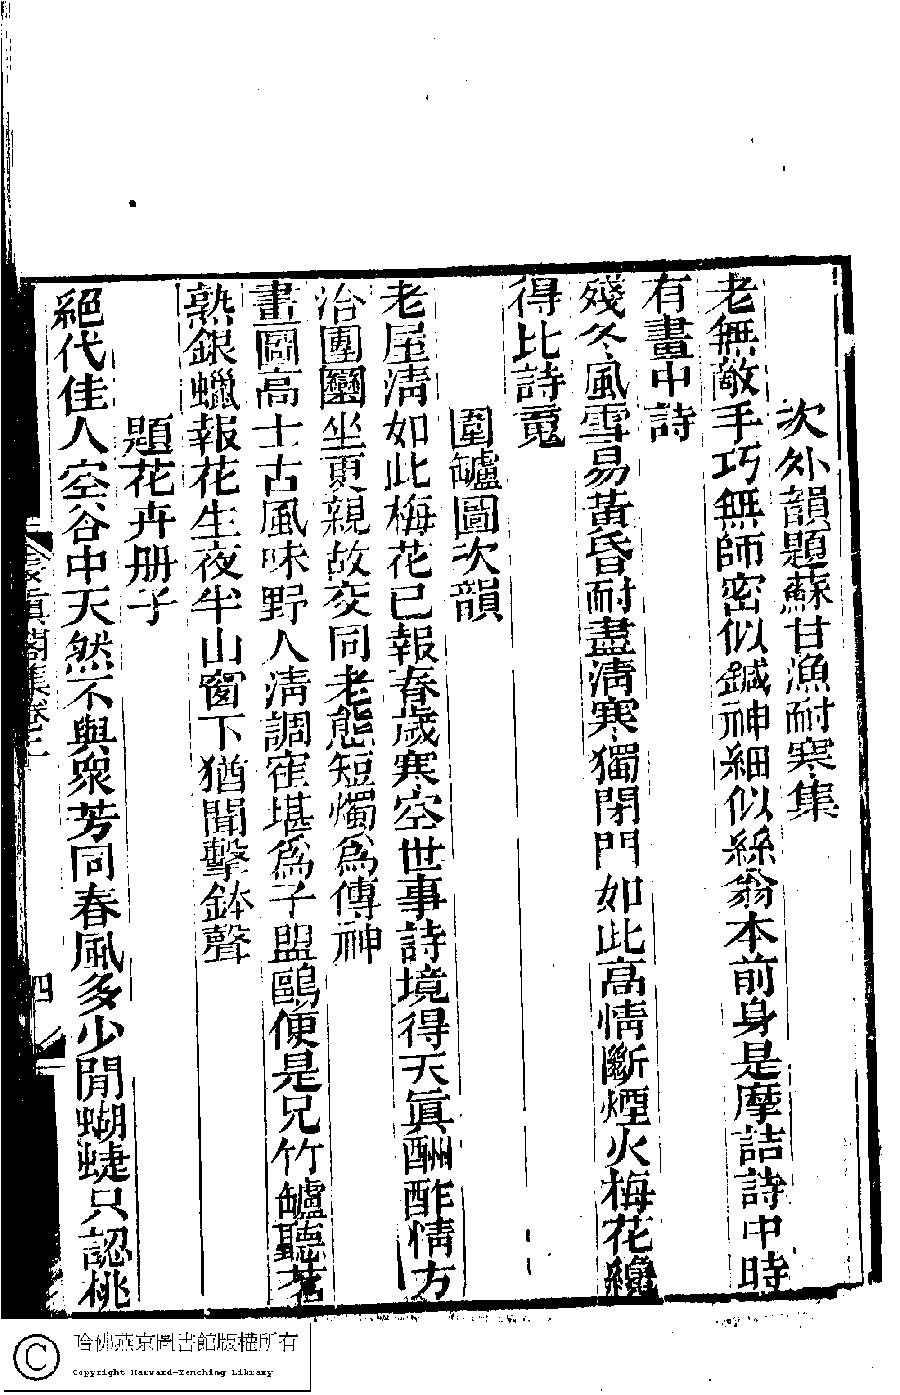 次外韻題蘇甘漁耐寒集
老無敵手巧無師密似鍼神細似絲翁本前身是摩詰詩中時
有畫中詩
殘冬風雪易黃昏耐盡淸寒獨閉門如此高情斷煙火梅花纔
得比詩䰟
圍鑪圖次韻
老屋淸如此梅花已報春歲寒空世事詩境得天眞酬酢情方
洽團圞坐更親故交同老態短燭爲傳神
畫圖高士古風味野人淸調寉堪爲子盟鷗便是兄竹罏聽茗
熟銀蠟報花生夜半山窗下猶聞擊鉢聲
題花卉册子
絕代佳人空谷中天然不與衆芳同春風多少閒蝴蜨只認桃
長眞閣集卷三
四
哈佛燕京圖書館版權所有
Copyright Harvard-Yenching Library